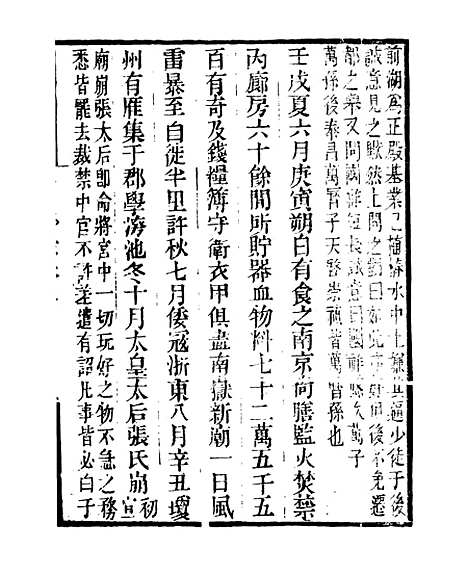 前湖爲正殿基業已植樁水中上嫌其逼少徙于後
誠意見之默然上問之對曰如此亦好但後不免遷
都之舉又問國祚短長誠意曰國祚悠久萬子
萬孫後泰昌萬曆子天啓崇禎皆萬曆孫也
壬戌夏六月庚寅朔日有食之南京尚膳監火焚禁
內廊房六十餘間所貯器皿物料七十二萬五千五
百有奇及錢糧簿守衛衣甲俱盡南嶽新廟一日風
雷暴至自徙半里許秋七月倭寇浙東八月辛丑瓊
州有雁集于郡學滂池冬十月太皇太后張氏崩初宣
廟崩張太后卽命將宮中一切玩好之物不急之務
悉皆罷去裁禁中官不許差遣有詔凡事皆必白于